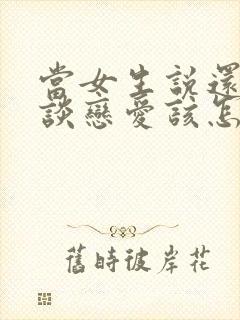 當女生說還
談戀愛該怎
舊時彼岸花